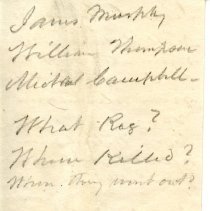 James Murphy
William Thompson
Michal Campbell
What Reg?
When Killed?
When they went out?